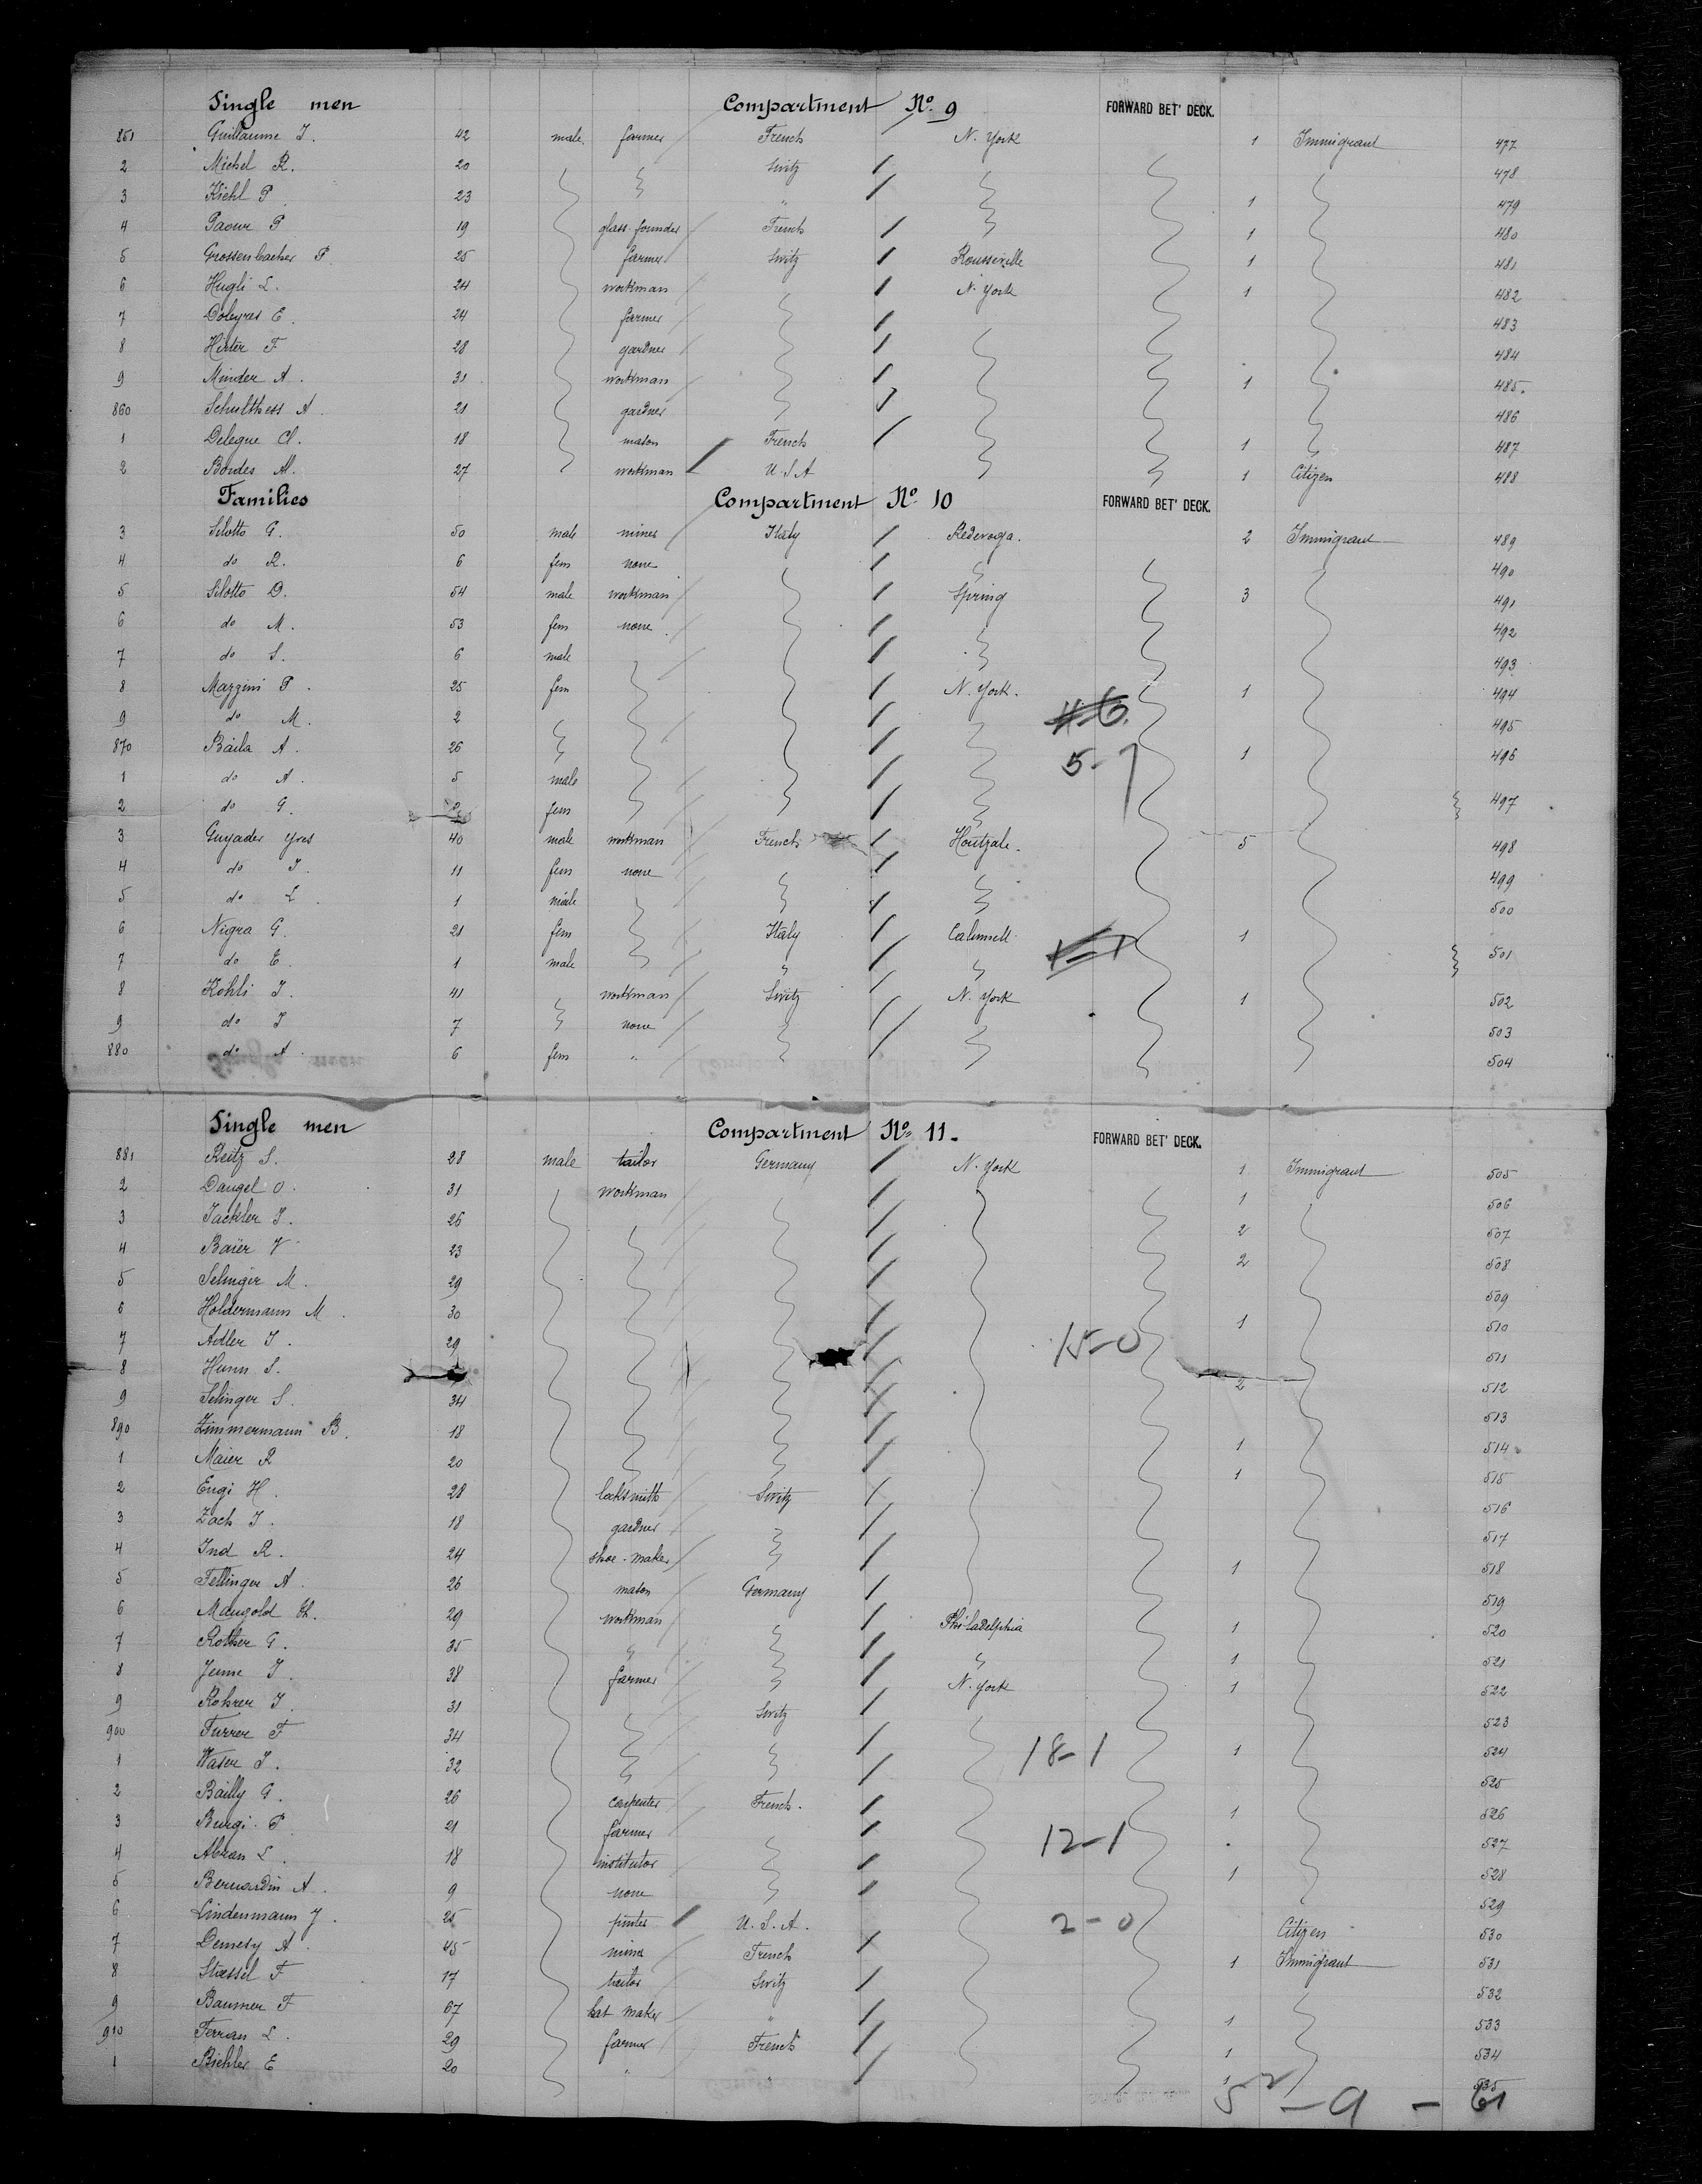 Single men Compartment No. 9 FORWARD BET' DECK.
851 Guillaume J. 42 male farmer French N. York 1 Immigrant 477
2 Michel R. 20 Switz 478
3 Kiehl P. 23 " 1 479
4 P. 19 glass founder French 1 480
5 Grossenbacher P. 25 farmer Switz 1 481
6 Hugli L. 24 workman N. York 1 482
7 E. 24 farmer 483
8 F. 28 gardner 484
9 Minder A. 31 workman 1 485
860 Schulthess A. 21 gardner 486
1 Delegue Cl. 18 mason French 1 487
2 Bordes Al. 27 workman U.S.A 1 Citizen 488
Families Compartment No. 10 FORWARD BET' DECK.
3 Silotto G. 50 male miner Italy 2 Immigrant 489
4 do R. 6 fem none 490
5 Silotto D. 54 male workman Spring 3 491
6 do M. 53 fem none 492
7 do S. 6 male 493
8 Mazzini P. 25 fem N. York. 1 494
9 do M. 2 495
4-6
870 Baila A. 26 1 496
5-7
1 do A. 5 male
2 do G. fem 497
3 Guyader Yves 40 male workman French Houtzale. 5 498
4 do J. 11 fem none 499
5 do L. 1 male 500
6 Nigra G. 21 fem Italy 1 501
7 do E. 1 male "
8 Kohli J. 41 workman Switz N. York 1 502
9 do J 7 none 503
880 do A. 6 fem " 504
Single men Compartment No. 11. FORWARD BET' DECK.
881 Reitz S. 28 male tailor Germany N. York 1 Immigrant 505
2 Dangel O. 31 workman 1 506
3 Jackler J. 26 2 507
4 Baier V 23 2 508
5 Selinger M. 29 509
6 Holdermann M. 30 1 510
7 Adler J. 29 15-0 511
8 Hunn S. 2 512
9 Selinger S. 34 513
890 Zimmermann B. 18 1 514
1 Maier R 20 1 515
2 Engi H. 28 locksmith Switz 516
3 Zach J. 18 gardner 517
4 Ind R. 24 shoe-maker 1 518
5 Fellinger A. 26 mason Germany 519
6 Mangold Ch. 29 workman Philadelphia 1 520
7 Rother G. 35 " 1 521
8 Jenne J. 38 farmer N. York 1 522
9 Rohrer J. 31 Switz 523
900 Furrer F 34 18-1 1 524
1 Waser J. 32 525
2 Bailly G. 26 carpenter French. 1 526
3 Burgi P 21 farmer 12-1 527
4 Abran L. 18 institutor 1 528
5 Bernardin A. 9 none 529
6 Lindenmann J. 25 U.S.A. 2-0 Citizen 530
7 Demesy A. 45 miner French 1 Immigrant 531
8 Stoessel F 17 tailor Switz 532
9 Baumer F 67 hat maker " 1 533
910 Ferran L. 29 farmer French 1 534
1 Biehler E 20 " " 1 535
52 - 9 - 61